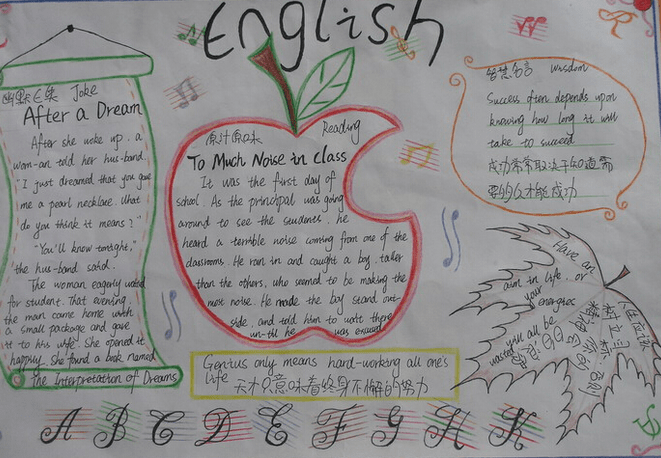 English
幽默一笑 Joke
After a Dream
After she woke up, a
wom-an told her hus-band,
"I just dreamed that you gave
me a pearl necklace. What
do you think it means?"
"You'll know tonight,"
the hus-band said.
The woman eagerly
for student. That evening,
the man came home with
a small package and gave
it to his wife. She opened it
happily. She found a book named
The Interpretation of Dreams
原汁原味 Reading
To Much Noise in Class
It was the first day of
school. As the principal was going
around to see the students, he
heard a terrible noise coming from one of the
classrooms. He ran in and caught a boy, taller
than the others, who seemed to be making the
most noise. He made the boy stand out-
side, and told him to wait there
un-til he was excused
Genius only means hard-working all one's
life
天才只意味着终身不懈的努力
智慧名言 Wisdom
Success often depends upon
knowing how long it will
take to succeed
成功常常取决于知道需
要多久才能成功
Have an
aim in life, or
your energies
will all be
wasted
人生应该
树立目标
否则
你的
精力
会白白
浪费
A B C D E F G H K